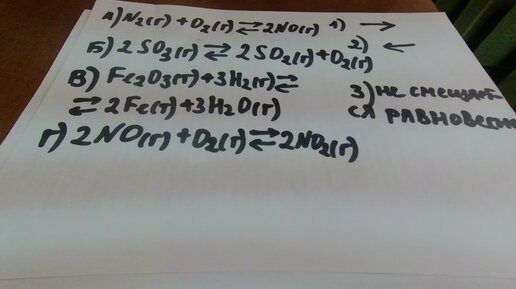 А) N2(г) + O2(г) ⇄ 2NO(г) 1) →
Б) 2SO3(г) ⇄ 2SO2(г) + O2(г) 2) ←
В) Fe2O3(т) + 3H2(г) ⇄
⇄ 2Fe(т) + 3H2O(г)
3) НЕ СМЕЩАЕТ-
СЯ РАВНОВЕСИЕ
Г) 2NO(г) + O2(г) ⇄ 2NO2(г)